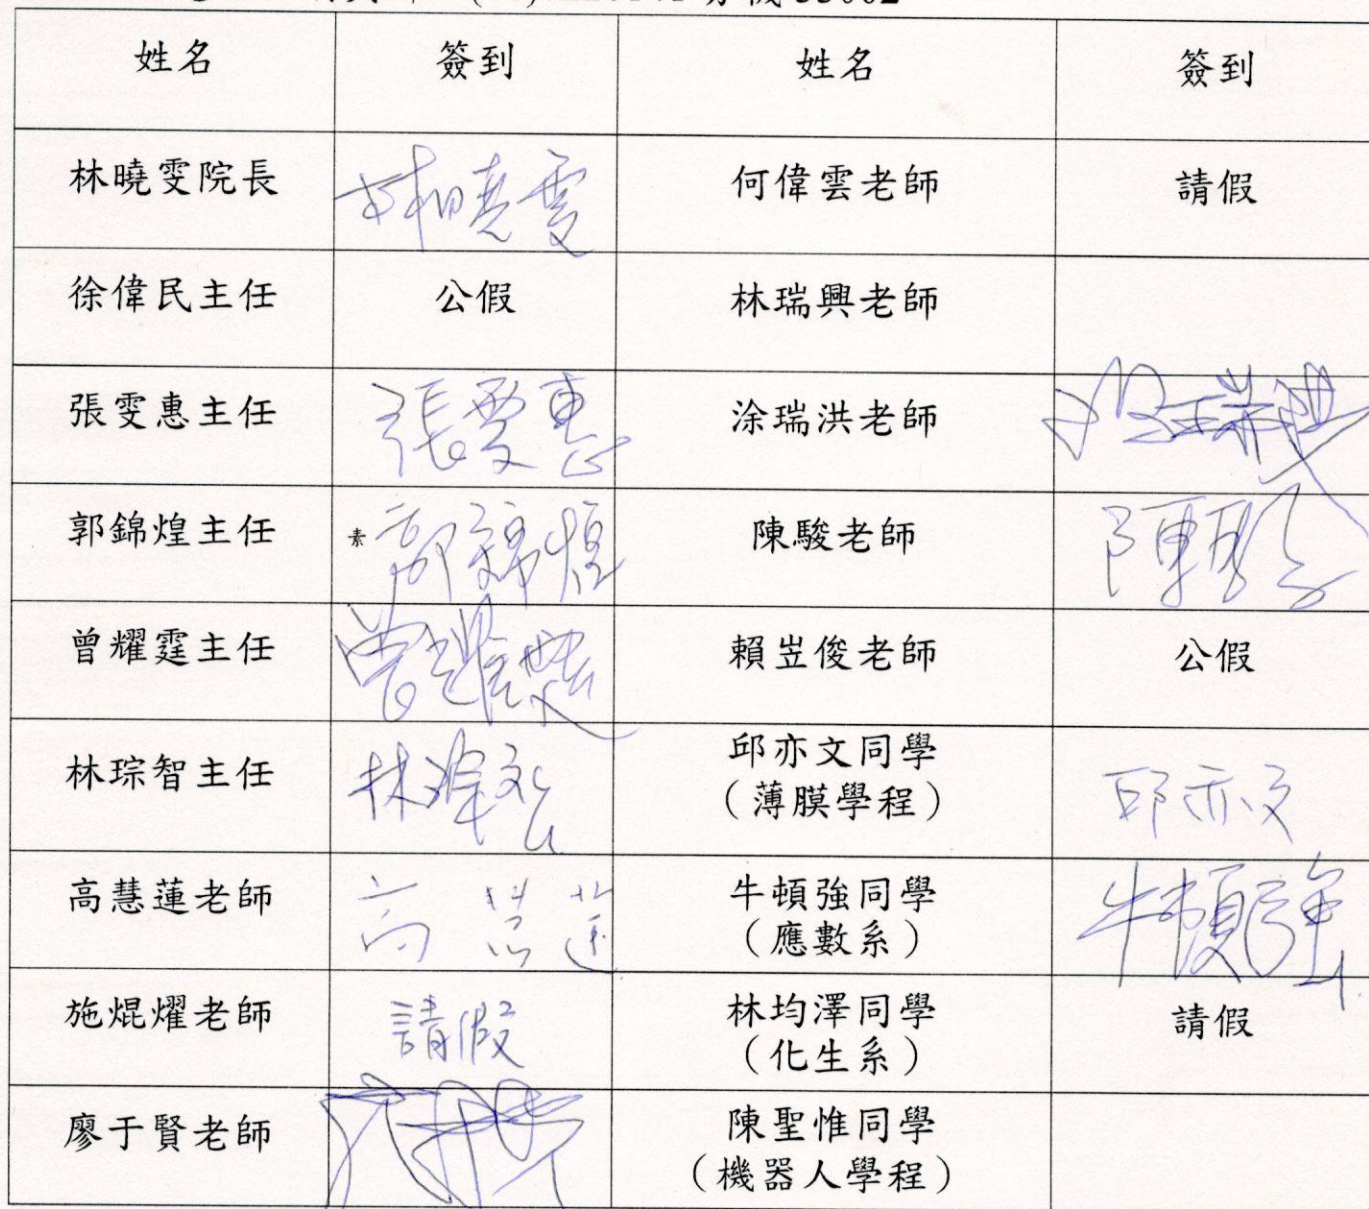 姓名 簽到 姓名 簽到
林曉雯院長 林曉雯 何偉雲老師 請假
徐偉民主任 公假 林瑞興老師
張雯惠主任 張雯惠 涂瑞洪老師 涂瑞洪
郭錦煌主任 素 郭錦煌 陳駿老師 陳駿
曾耀霆主任 曾耀霆 賴岦俊老師 公假
林琮智主任 邱亦文同學
(薄膜學程) 邱亦文
高慧蓮老師 高慧蓮 牛頓強同學
(應數系) 牛頓強
施焜燿老師 請假 林均澤同學 請假
(化生系)
廖于賢老師 陳聖惟同學
(機器人學程)